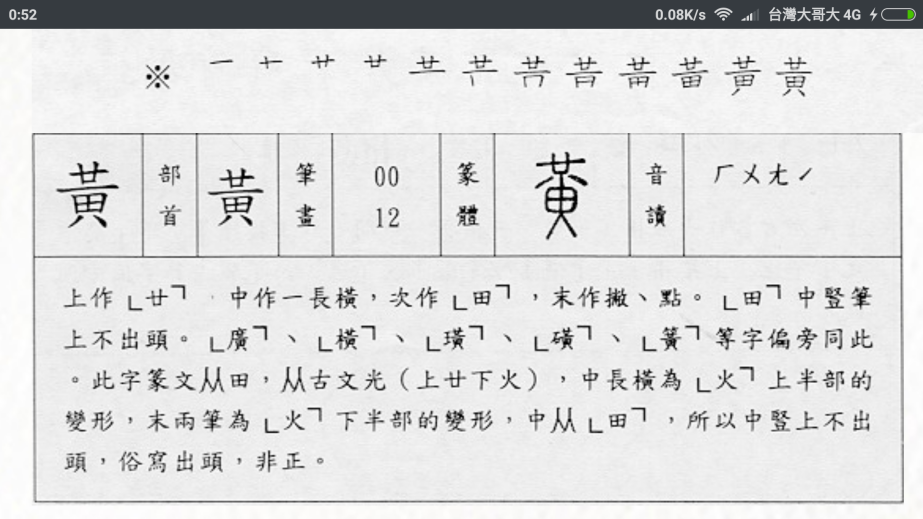 0:52 0.08K/s 台灣大哥大 4G
※
黃 部首 黃 筆畫 00 12 篆體 黃 音讀 ㄏㄨㄤˊ
上作「廿」,中作一長橫,次作「田」,末作撇、點。「田」中豎筆
上不出頭。「廣」、「橫」、「璜」、「磺」、「簧」等字偏旁同此
。此字篆文从田,从古文光(上廿下火),中長橫為「火」上半部的
變形,末兩筆為「火」下半部的變形,中从「田」,所以中豎上不出
頭,俗寫出頭,非正。